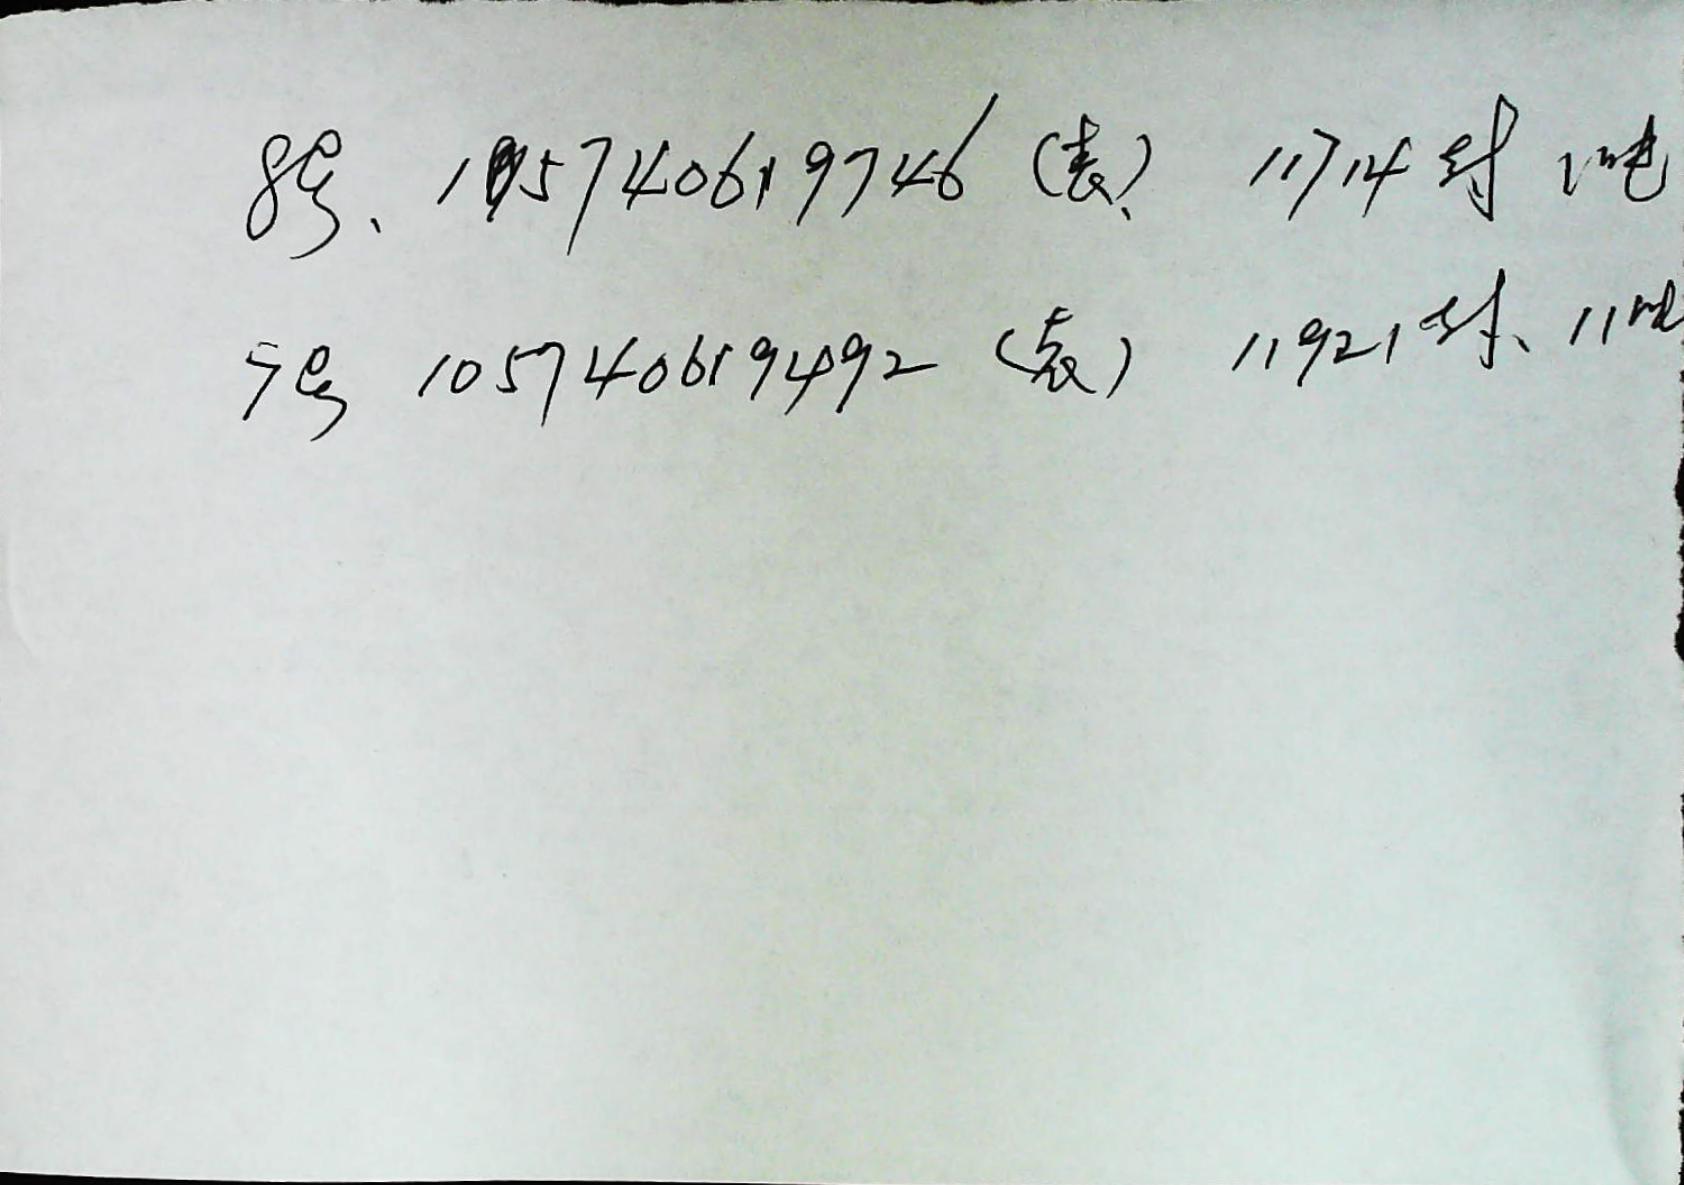 8号、105740619746(表) 11714封 吨
5号 105740619492(表) 11921封、11吨